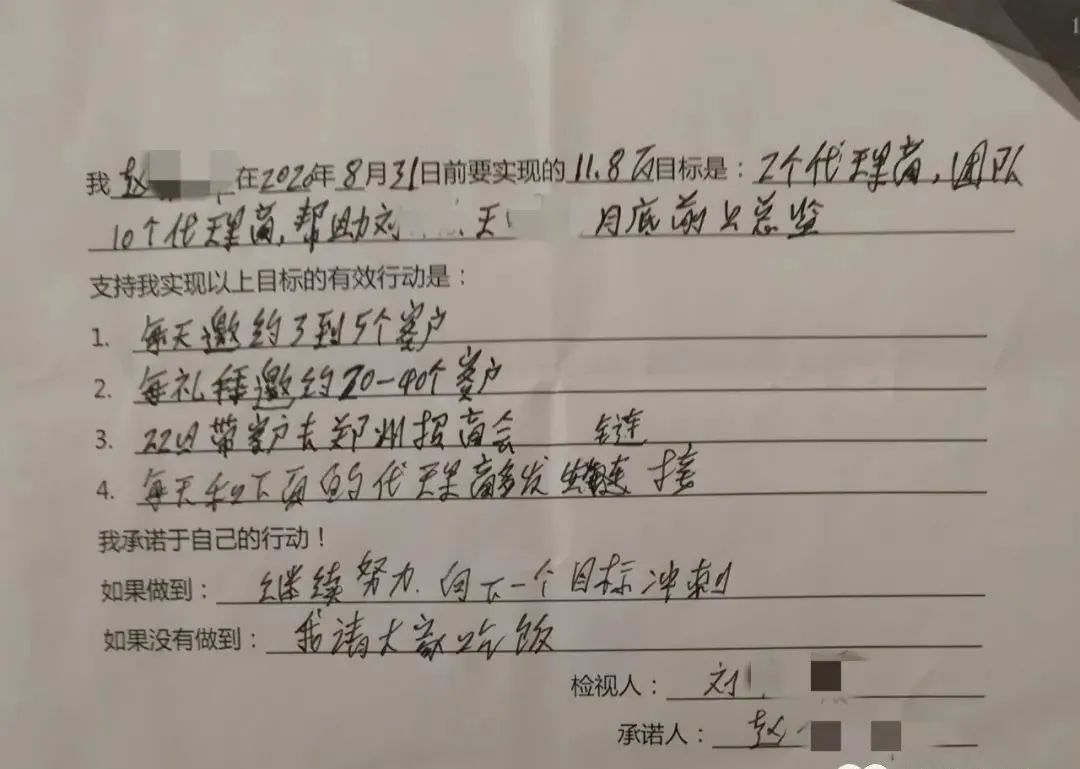 我 赵 在2020年8月31日前要实现的11.8万目标是：2个代理商，团队
10个代理商，帮助刘 天 月底前上总监
支持我实现以上目标的有效行动是：
1. 每天邀约3到5个客户
2. 每礼拜邀约20-40个客户
3. 22日带客户去郑州招商会 链
4. 每天和下面的代理商多发 链接
我承诺于自己的行动！
如果做到：继续努力.向下一个目标冲刺
如果没有做到：我请大家吃饭
检视人：刘
承诺人：赵